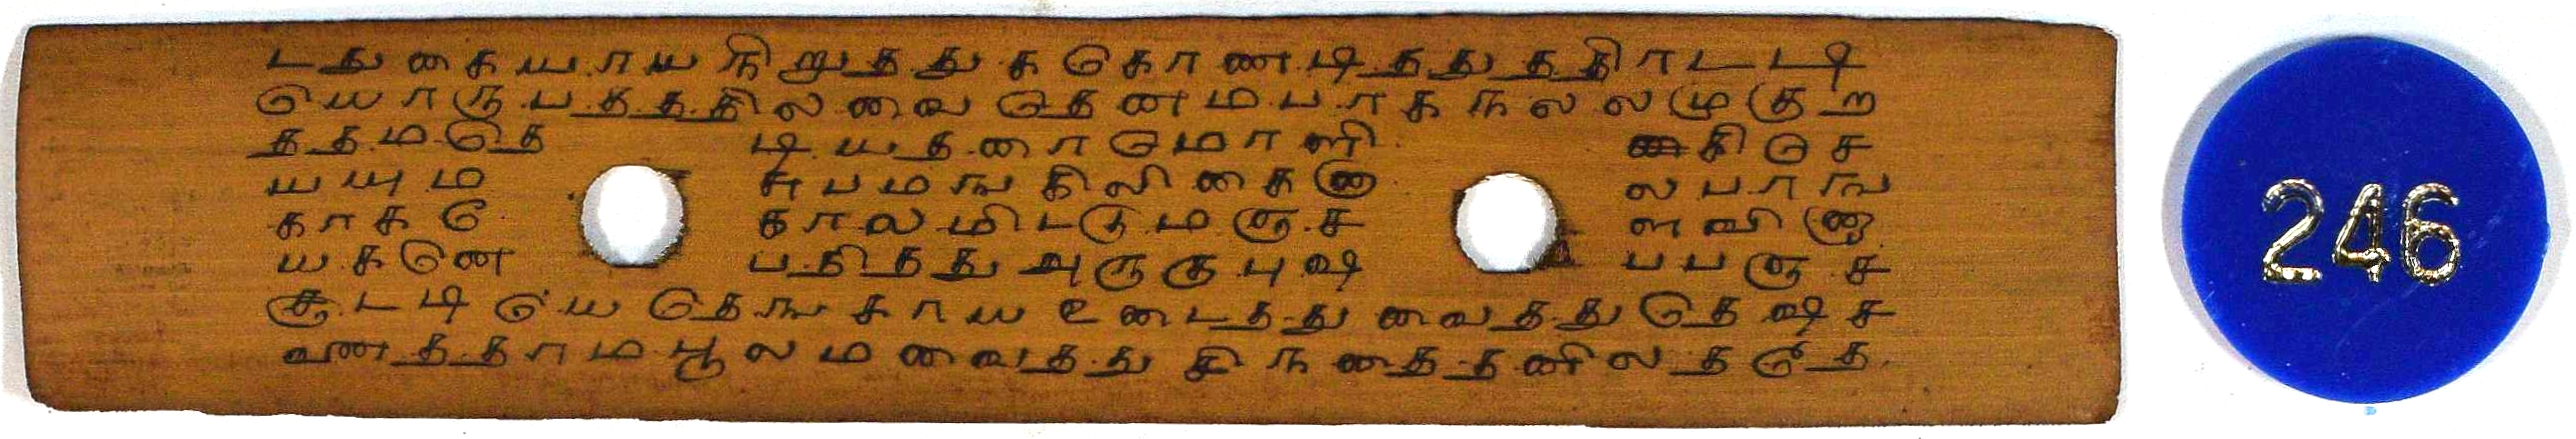 டது கையாய நிறுதது க கொணடிதது ததிராடடி
யொரு பதததில வை தெனம பாக நலலமுகுற
தத ம தெ டியதரை மொளி கிச
யயும சுபமஙகிலிகை லபாங
காக காலமிடடு மஞச ளவி
யகணெ பதிதது அருகு புஷ பபஞச
சூடடியெ தெஙகாய உடைதது வைதது தெஷச
ணததாமபூலமவைதது சிநதைதனிலததெ
246